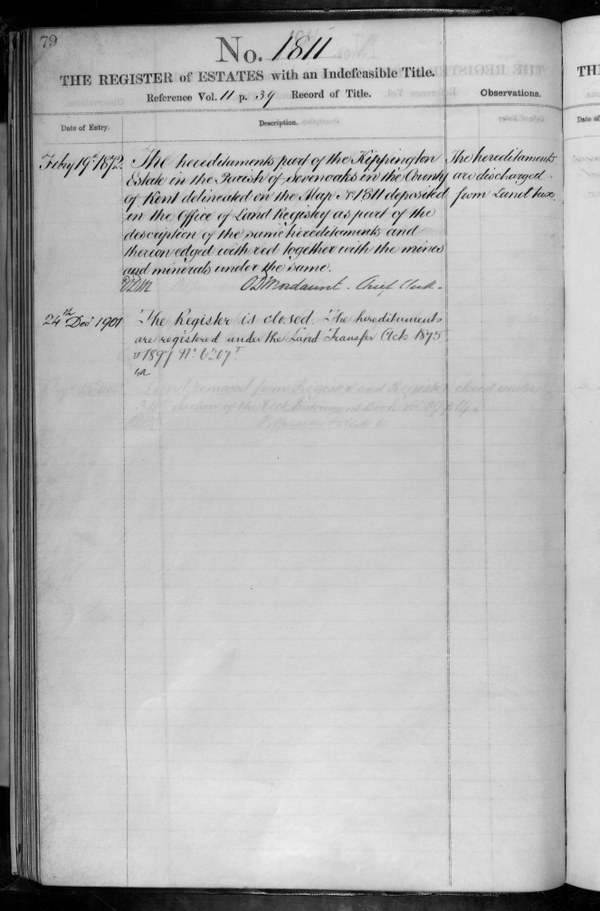 79
No. 1811
THE REGISTER of ESTATES with an Indefeasible Title.
Reference Vol. 11 p. 39 Record of Title.
Observations.
Date of Entry.
Description.
Feby 19th 1872.
The hereditaments part of the Kippington
Estate in the Parish of Sevenoaks in the County
of Kent delineated on the Map No 1811 deposited
in the Office of Land Registry as part of the
description of the same hereditaments and
thereon edged with red together with the mines
and minerals under the same.
Mordaunt. Chief Clerk.
The hereditaments
are discharged
from Land tax.
24th Decr 1901
The Register is closed. The hereditaments
are registered under the Land Transfer Acts 1875
& 1897 No
TH
Date of